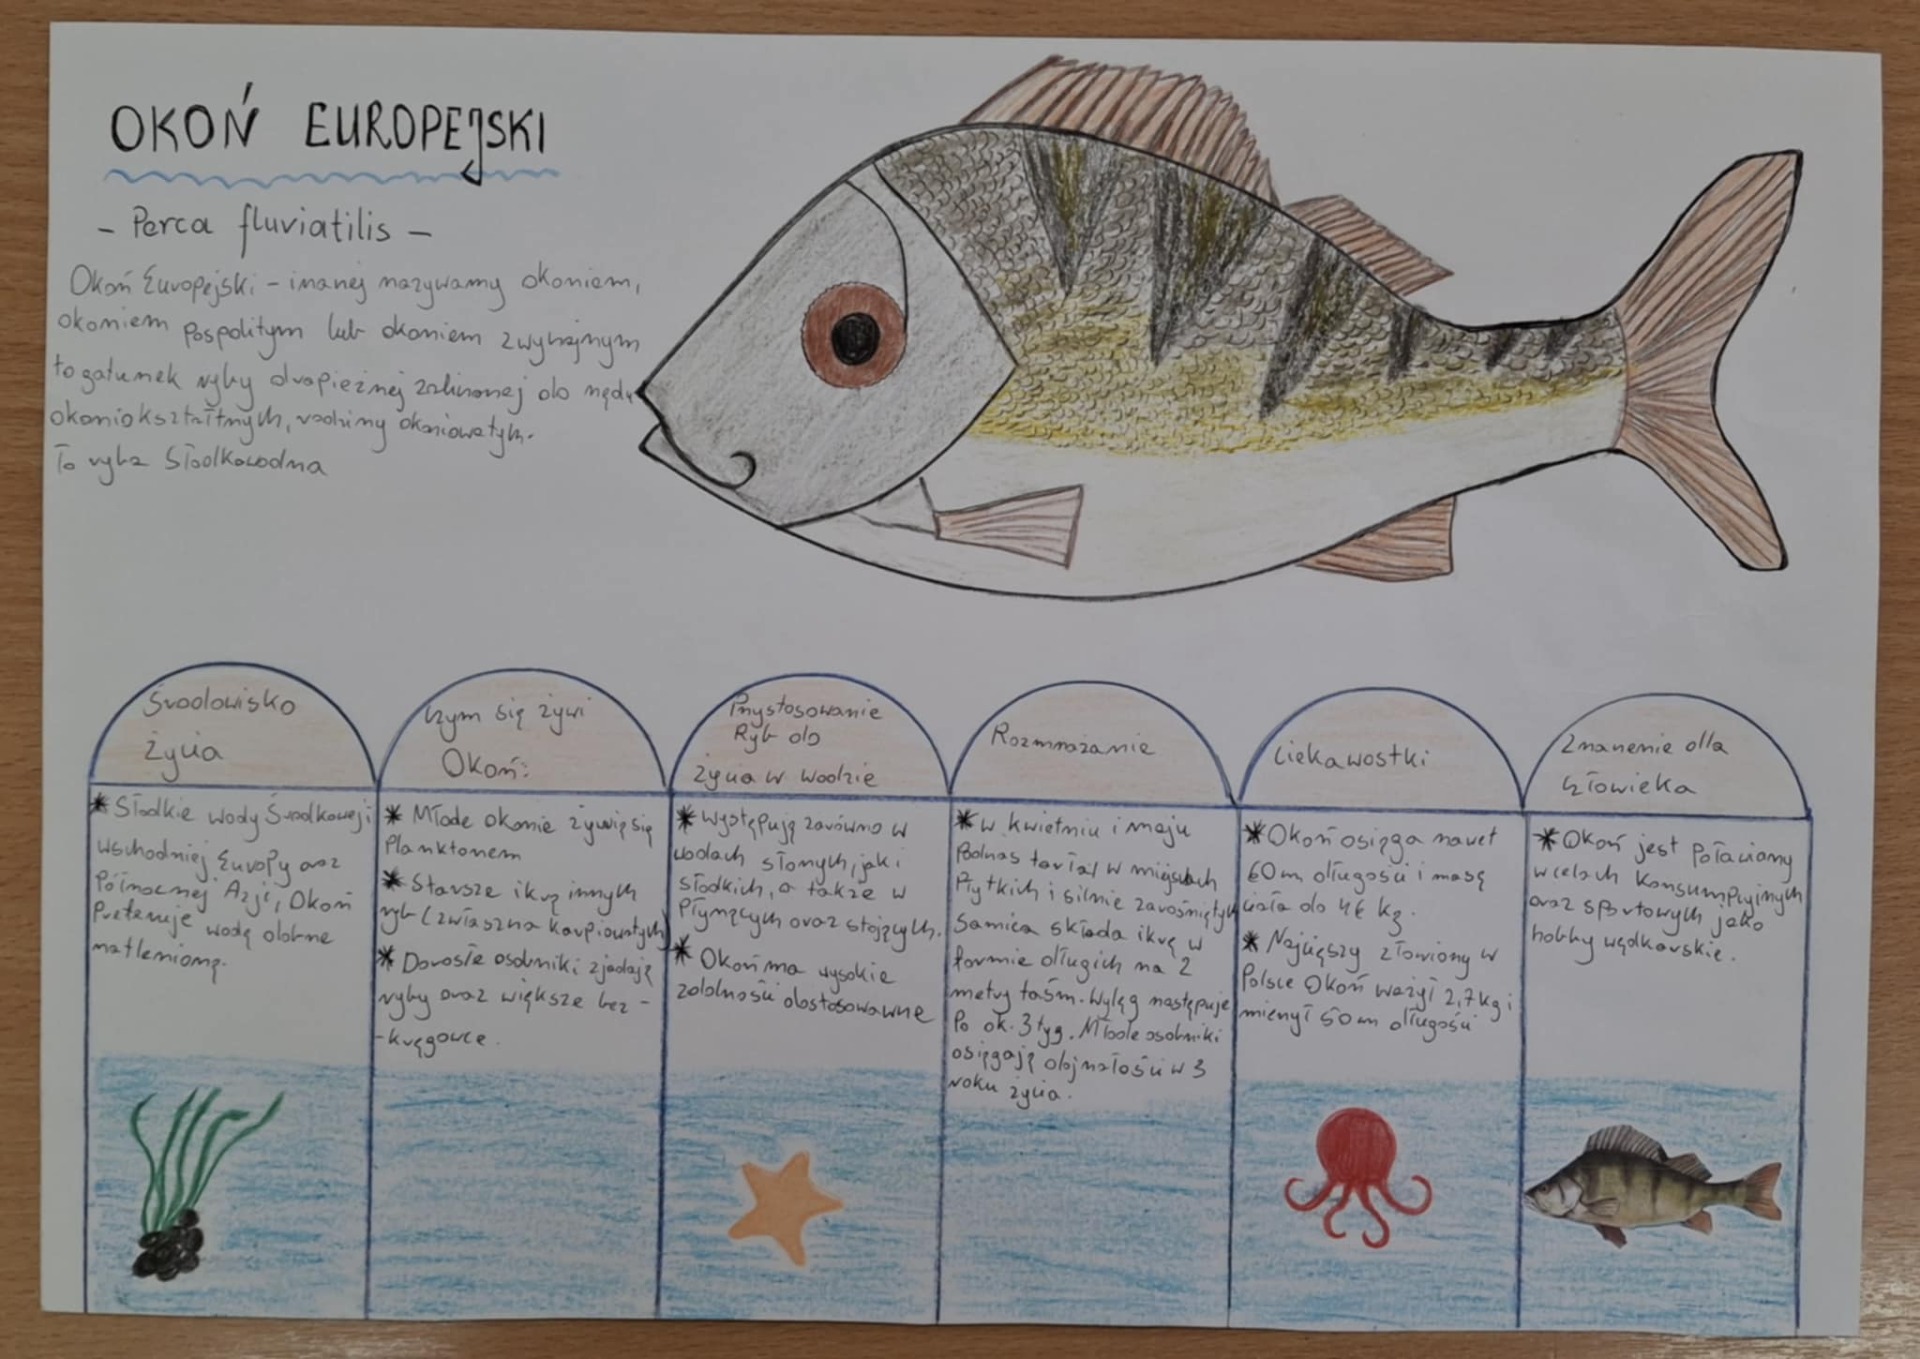 OKOŃ EUROPEJSKI
- Perca fluviatilis -
Okoń Europejski - inanej nazywamy okoniem,
okoniem pospolitym lub okoniem zwyczajnym
to gatunek ryby drapieżnej zaliczonej do rzędu
okoniokształtnych, rodziny okoniowatych.
To ryba Słodkowodna
Środowisko
Życia
* Słodkie wody Środkowej i
wschodniej Europy oraz
Północnej Azji, Okoń
Preferuje wodę dobrze
natlenioną.
Czym się żywi
Okoń?
* Młode okonie żywią się
Planktonem
* Starsze ikrą innych
ryb (zwłaszcza karpiowatych)
* Dorosłe osobniki zjadają
ryby oraz większe bez-
-kręgowce.
Przystosowanie
Ryb do
życia w wodzie
* występują zarówno w
wodach słonych, jak i
słodkich, a także w
Płynących oraz stojących.
* Okoń ma wysokie
zdolności dostosowawcze
Rozmnażanie
* w kwietniu i maju
Podczas tarła, w miejscach
Płytkich i silnie zarośniętych
Samica składa ikrę w
formie długich na 2
metry taśm. Wylęg następuje
Po ok. 3 tyg. Młode osobniki
osiągają dojrzałości w 3
roku życia.
Ciekawostki
* Okoń osiąga nawet
60cm długości i masę
ciała do kg.
* Najwięszy złowiony w
Polsce Okoń ważył 2,7kg i
mierzył 50cm długości
Znaczenie dla
Człowieka
* Okoń jest poławiany
w celach konsumpcyjnych
oraz sportowych jako
hobby wędkarskie.